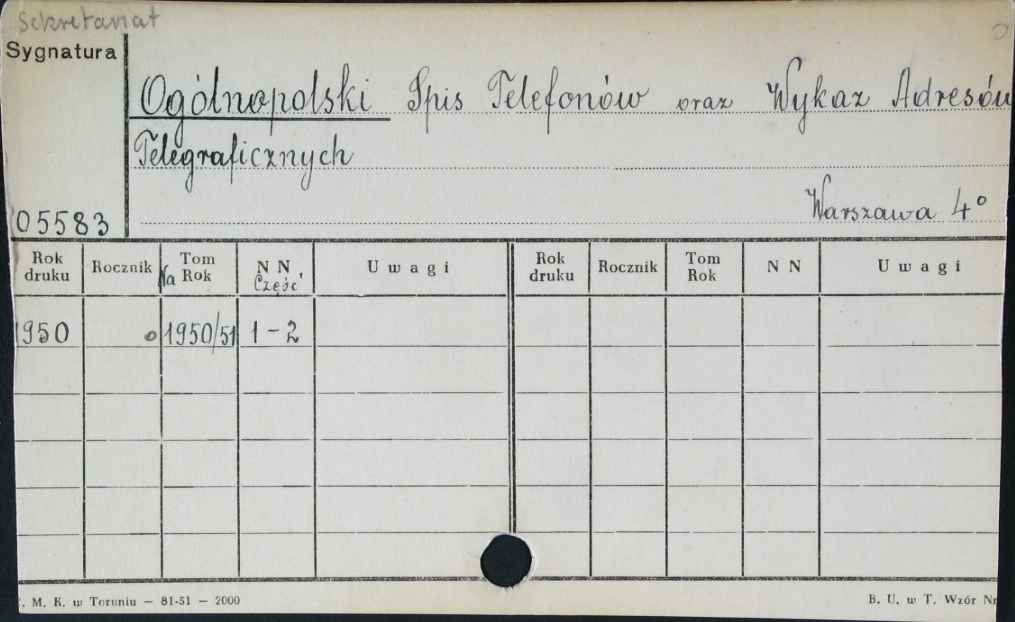 Sekretariat
Sygnatura
Ogólnopolski Spis Telefonów oraz Wykaz Adresów
Telegraficznych
Warszawa 4°
05583
Rok druku Rocznik Na Tom Rok N N, Część Uwagi Rok druku Rocznik Tom Rok N N Uwagi
1950 1950/51 1-2
. M. K. w Toruniu — 81-51 — 2000 B. U. w T. Wzór Nr